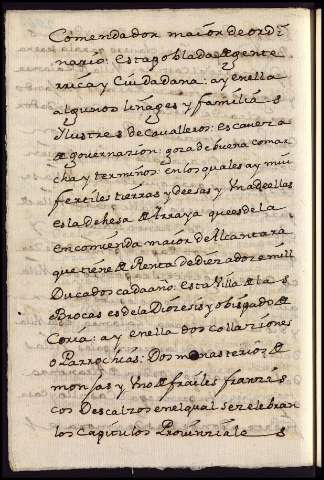 Comendador maior de ordi
nario: esta poblada de gente
rrica y Ciudadana: ay en ella
algunos linages y familias
Ylustres de Cavalleros: es caveza
de governazion: goza de buena comar
cha y terminos: en los quales ay mui
fertiles tierras y deesas y Una de ellas
es la dehesa de Arraya que es de la
encomienda maior de Alcantara
que tiene de Renta de diez a doze mill
Ducados cada año: esta Villa de las
Brocas es de la Diozesis y obispado de
Coria: ay en ella dos collaziones
o Parrochias: Dos monasterios de
monjas y Uno de frailes franzis
cos Descalzos en el qual se zelebran
los capitulos Provinziales